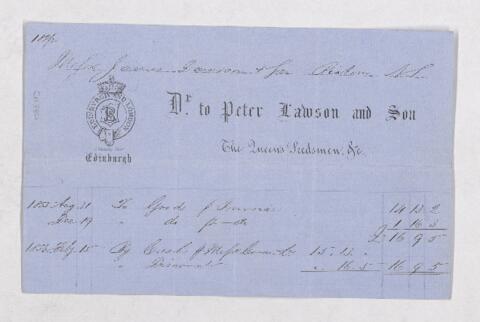 Messrs James Dawson & Son Boston U.S.
Dr. to Peter Lawson and Son
EDINBURGH AND LONDON
Edinburgh
The Queen's Seedsmen, &c.
1855 Aug. 31 To Goods p Invoice 14 13 2
Dec 19 " do p do 1 16 3
£ 16 9 5
By Cash p Messrs 15 13 "
" Discount " 16 5 16 9 5